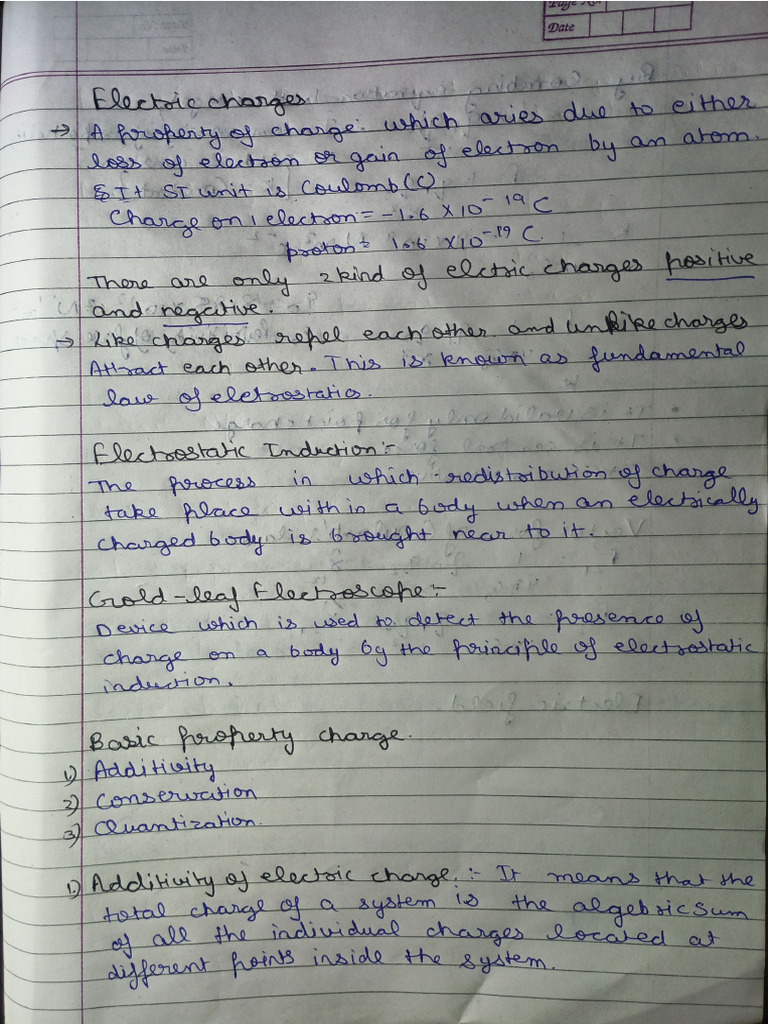 Page No.
Date
Electric charges
→ A property of charge. which aries due to either
loss of electron or gain of electron by an atom.
& It SI unit is Coulomb (C)
Charge on 1 electron = -1.6 X10⁻¹⁹ C
proton = 1.6 X10⁻¹⁹ C.
There are only 2 kind of elctric charges positive
and negative.
→ Like charges repel each other and unlike charges
Attract each other. This is known as fundamental
law of eletrostatics.
Electrostatic Induction :-
The process in which redistribution of charge
take place with in a body when an electrically
charged body is brought near to it.
Gold-leaf Electroscope :-
Device which is used to detect the presence of
charge on a body by the principle of electrostatic
induction.
Basic property charge.
1) Additivity
2) Conservation
3) Quantization.
1) Additivity of electric charge. :- It means that the
total charge of a system is the algebric sum
of all the individual charges located at
different points inside the system.